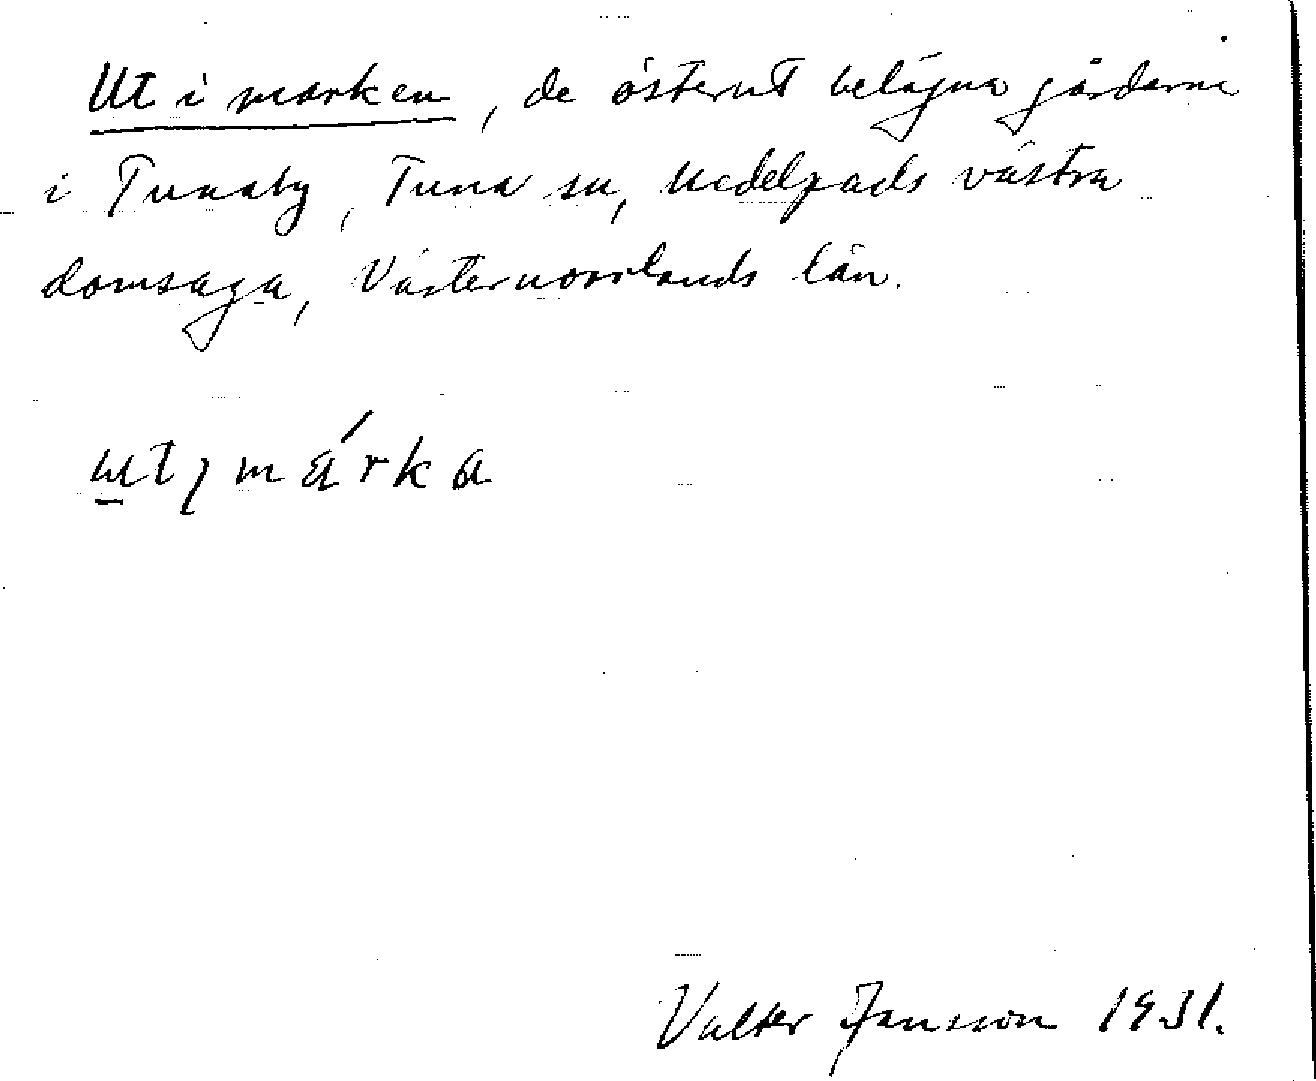 Ut i marken, de österut belägna gårdarna
i Tunaby, Tuna sn, Medelpads västra
domsaga, Västernorrlands län.
utı márka
Valter Jansson 1931.